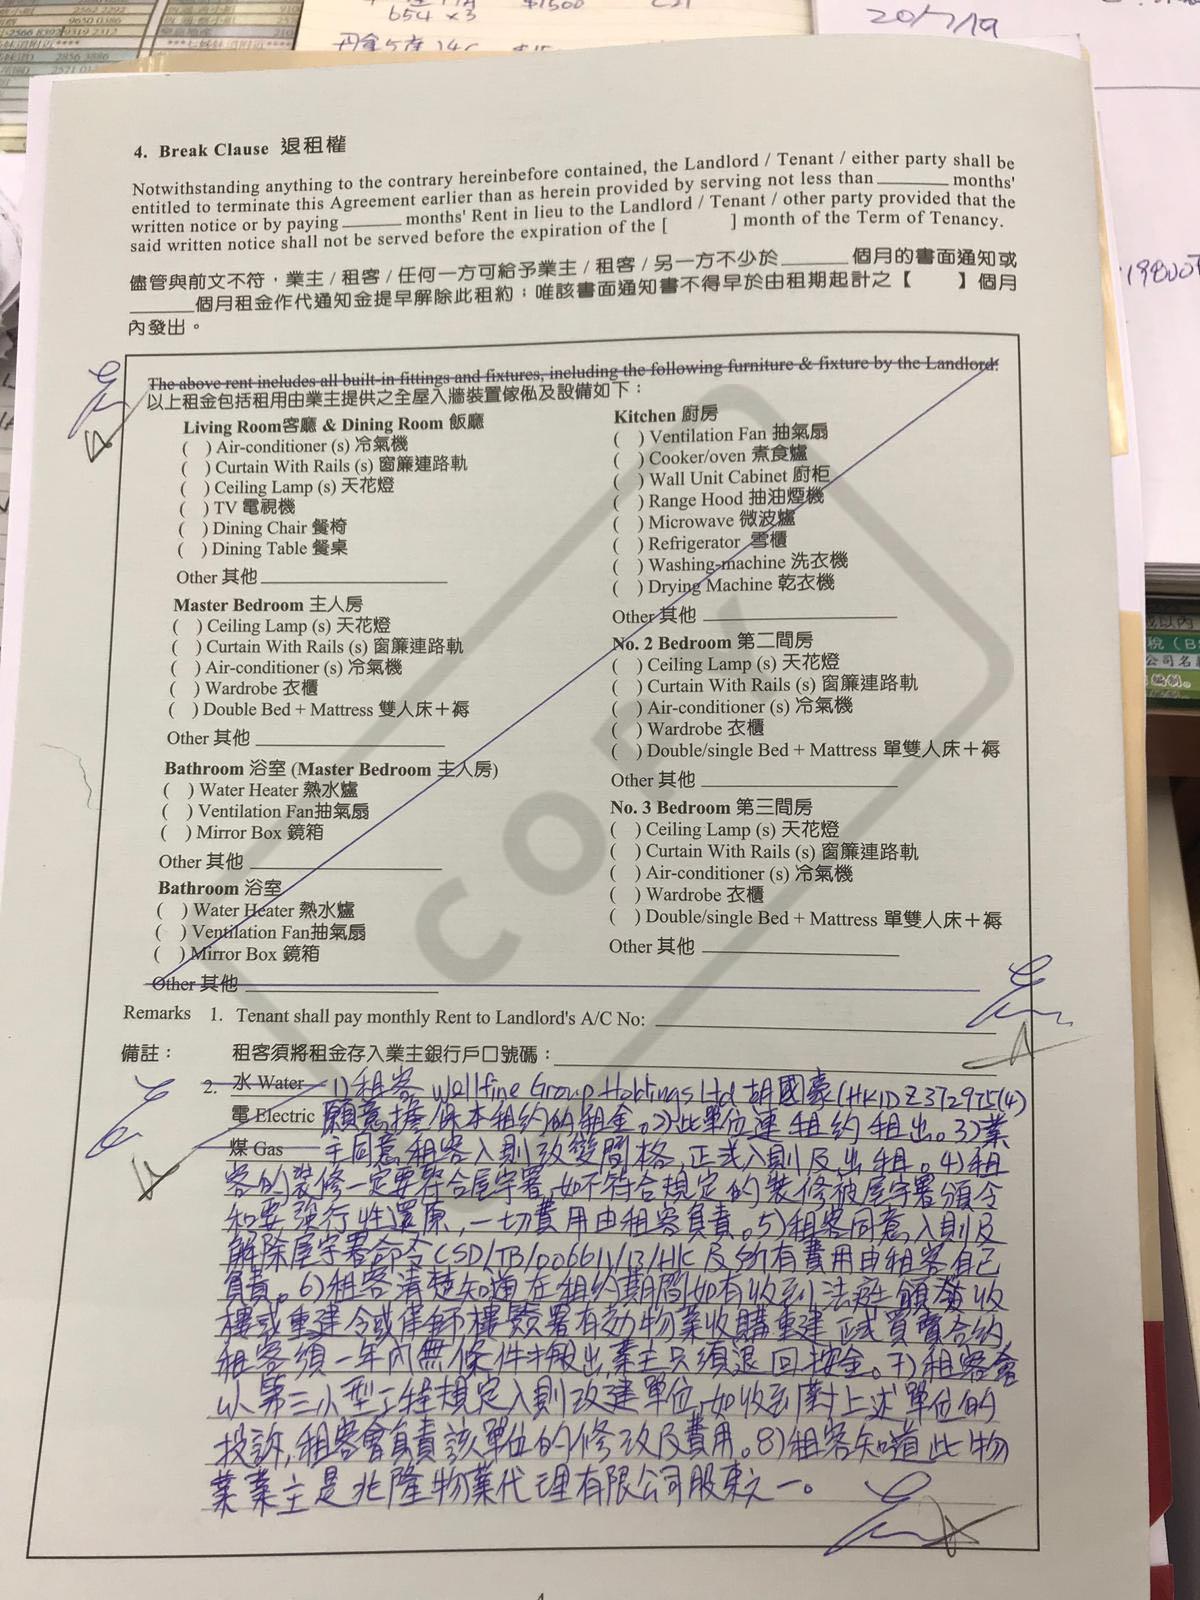 654 x3
$1500
20/7/19
2562 2292
9650 0386
2566 8392
9319 2312
2856 3886
19800
4. Break Clause 退租權
Notwithstanding anything to the contrary hereinbefore contained, the Landlord / Tenant / either party shall be
entitled to terminate this Agreement earlier than as herein provided by serving not less than ________ months'
written notice or by paying ________ months' Rent in lieu to the Landlord / Tenant / other party provided that the
said written notice shall not be served before the expiration of the [ ] month of the Term of Tenancy.
儘管與前文不符，業主 / 租客 / 任何一方可給予業主 / 租客 / 另一方不少於________個月的書面通知或
________個月租金作代通知金提早解除此租約；唯該書面通知書不得早於由租期起計之【 】個月
內發出。
The above rent includes all built-in fittings and fixtures, including the following furniture & fixture by the Landlord:
以上租金包括租用由業主提供之全屋入牆裝置傢俬及設備如下：
Living Room客廳 & Dining Room 飯廳
( ) Air-conditioner (s) 冷氣機
( ) Curtain With Rails (s) 窗簾連路軌
( ) Ceiling Lamp (s) 天花燈
( ) TV 電視機
( ) Dining Chair 餐椅
( ) Dining Table 餐桌
Other 其他
Master Bedroom 主人房
( ) Ceiling Lamp (s) 天花燈
( ) Curtain With Rails (s) 窗簾連路軌
( ) Air-conditioner (s) 冷氣機
( ) Wardrobe 衣櫃
( ) Double Bed + Mattress 雙人床＋褥
Other 其他
Bathroom 浴室 (Master Bedroom 主人房)
( ) Water Heater 熱水爐
( ) Ventilation Fan抽氣扇
( ) Mirror Box 鏡箱
Other 其他
Bathroom 浴室
( ) Water Heater 熱水爐
( ) Ventilation Fan抽氣扇
( ) Mirror Box 鏡箱
Other 其他
Kitchen 廚房
( ) Ventilation Fan 抽氣扇
( ) Cooker/oven 煮食爐
( ) Wall Unit Cabinet 廚柜
( ) Range Hood 抽油煙機
( ) Microwave 微波爐
( ) Refrigerator 雪櫃
( ) Washing-machine 洗衣機
( ) Drying Machine 乾衣機
Other 其他
No. 2 Bedroom 第二間房
( ) Ceiling Lamp (s) 天花燈
( ) Curtain With Rails (s) 窗簾連路軌
( ) Air-conditioner (s) 冷氣機
( ) Wardrobe 衣櫃
( ) Double/single Bed + Mattress 單雙人床＋褥
Other 其他
No. 3 Bedroom 第三間房
( ) Ceiling Lamp (s) 天花燈
( ) Curtain With Rails (s) 窗簾連路軌
( ) Air-conditioner (s) 冷氣機
( ) Wardrobe 衣櫃
( ) Double/single Bed + Mattress 單雙人床＋褥
Other 其他
COPY
Remarks 1. Tenant shall pay monthly Rent to Landlord's A/C No:
備註： 租客須將租金存入業主銀行戶口號碼：
2. 水 Water 1)租客 Wellfine Group Holdings Ltd 胡國豪(HKID Z372975(4)
電 Electric 願意擔保本租約的租金。2)此單位連租約租出。3)業
煤 Gas 主同意租客入則改變間格，正式入則及出租。4)租
客的裝修一定要符合屋宇署，如不符合規定的裝修被屋宇署頒令
和要強行性還原，一切費用由租客負責。5)租客同意入則及
解除屋宇署命令CSD/TB/006611/13/HK及所有費用由租客自己
負責。6)租客清楚知道在租約期間如有收到法庭頒發收
樓或重建令或律師樓簽署有効物業收購重建正式買賣合約，
租客須一年內無條件搬出，業主只須退回按金。7)租客會
以第三小型工程規定入則改建單位，如收到對上述單位的
投訴，租客會負責該單位的修改及費用。8)租客知道此物
業業主是兆隆物業代理有限公司股東之一。